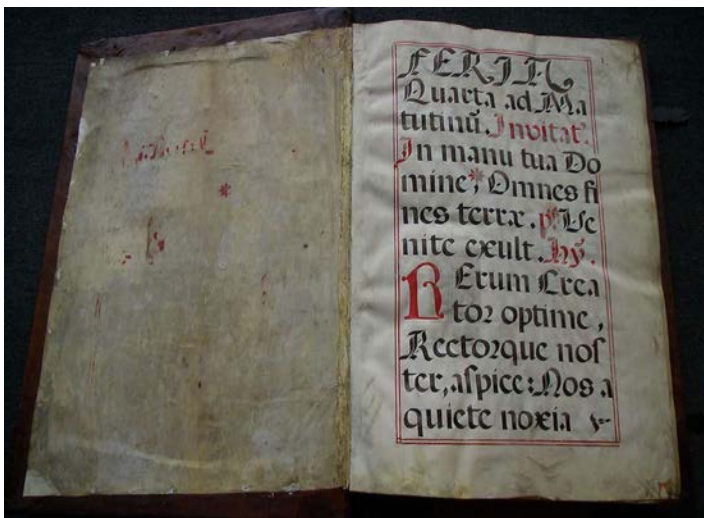 FERIA
Quarta ad Ma
tutinũ. Invitat.
In manu tua Do
mine, * Omnes fi
nes terræ. ps Ve
nite exult. Hỹ.
RErum Crea
toꝛ optime,
Rectoꝛque noſ
ter, aſpice: Nos a
quiete noxia